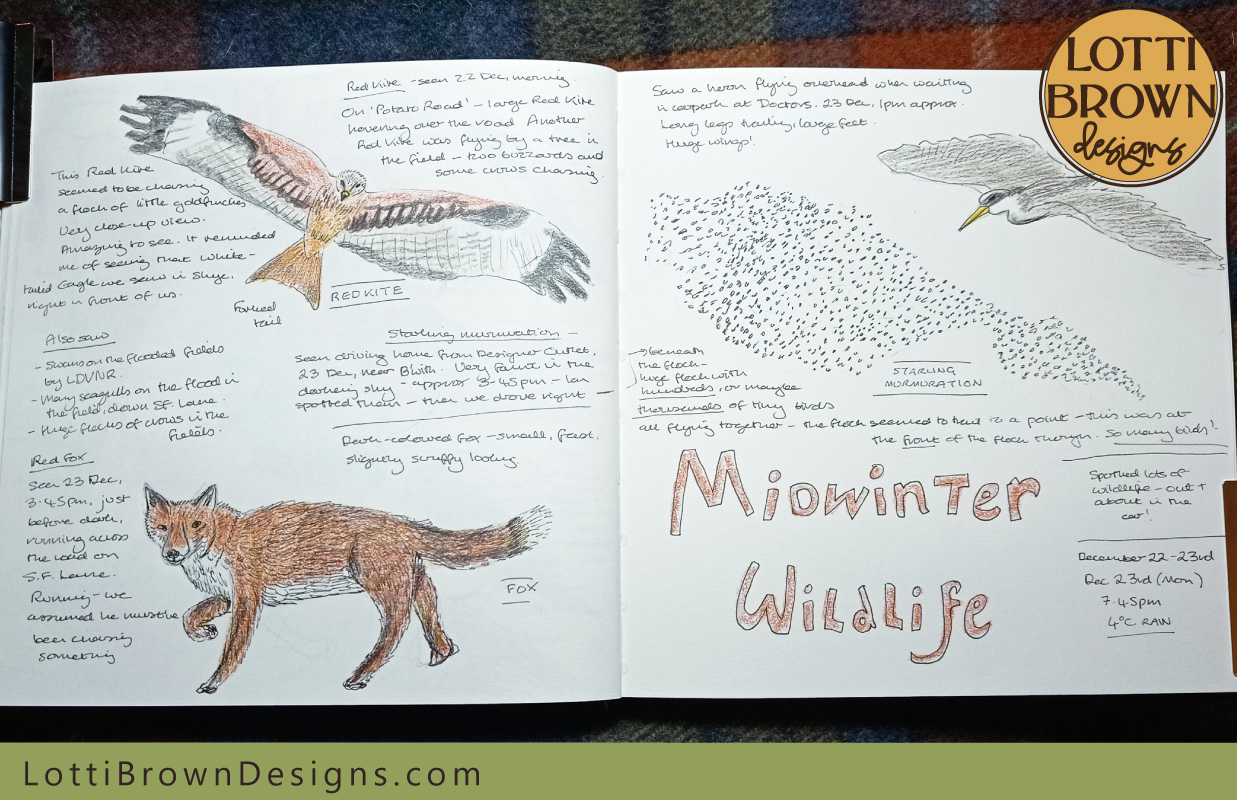 Red Kite - seen 22 Dec, morning.
On 'Potato Road' - large Red Kite
hovering over the road. Another
Red Kite was flying by a tree in
the field - two buzzards and
some crows chasing.
This Red Kite
seemed to be chasing
a flock of little goldfinches.
Very close-up view.
Amazing to see. It reminded
me of seeing that White-
tailed Eagle we saw in Skye,
right in front of us.
Forked
tail
RED KITE
Also saw
- Swans on the flooded fields
by LDVNR.
- Many seagulls on the flood in
the field, down S.F. Lane.
- Huge flocks of crows in the
fields.
Starling murmuration -
seen driving home from Designer Outlet,
23 Dec, near B'with. Very faint in the
darkening sky - approx 3.45pm - Ian
spotted them - then we drove right
Red Fox
Seen 23 Dec,
3.45pm, just
before dark,
running across
the road on
S.F. Lane.
Running - we
assumed he must've
been chasing
something
Dark-coloured fox - small, fast,
slightly scruffy looking
FOX
Saw a heron flying overhead when waiting
in carpark at Doctors. 23 Dec, 1pm approx.
Long legs trailing, large feet.
Huge wings!
→ beneath
the flock -
huge flock with
hundreds, or maybe
thousands of tiny birds
all flying together - the flock seemed to tail to a point - this was at
the front of the flock though. So many birds!
STARLING
MURMURATION
MIDWINTER
WILDLIFE
Spotted lots of
wildlife - out +
about in the
car!
December 22-23rd
Dec 23rd (Mon)
7.45pm
4°C RAIN
LOTTI
BROWN
designs
LottiBrownDesigns.com